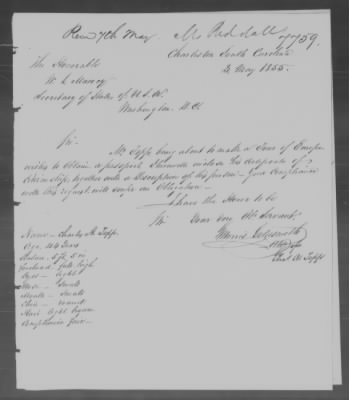 Recd 7th May
Charleston South Carolina
2 May 1855.
The Honorable
W. L. Marcy
Secretary of State of U.S.A.
Washington D.C.
Sir
Mr Topp being about to make a Tour of Europe
wishes to obtain a passport I herewith inclose his
together with a Description of his person - Your Compliance
with this request will confer an Obligation -
I have the Honor to be
Sir Your Obt Servant
Morris Goldsmith
Chas A. Topp
Name - Charles A. Topp.
Age. 44 Years
Stature. 5 ft. 5 in
Forehead full high
Eyes - Light
Nose - Small
Mouth - Small
Chin - round
Hair light brown
Complexion fair -